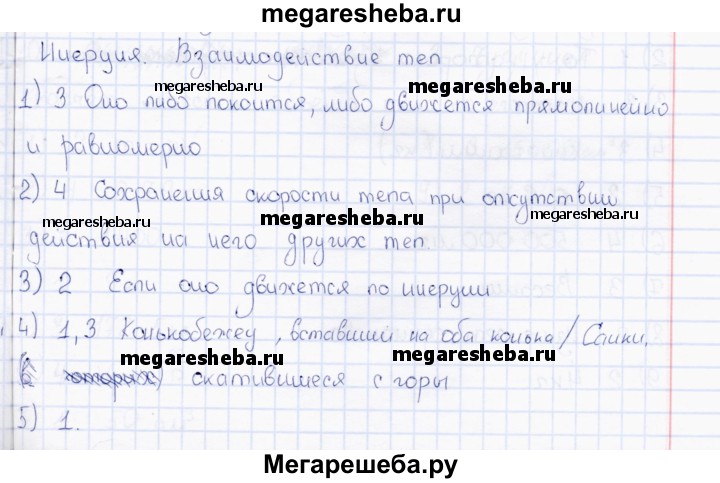 megaresheba.ru
Инерция. Взаимодействие тел
megaresheba.ru megaresheba.ru
1) 3 Оно либо покоится, либо движется прямолинейно
и равномерно
2) 4 Сохранения скорости тела при отсутствии
megaresheba.ru megaresheba.ru megaresheba.ru
действия на него других тел
3) 2 Если оно движется по инерции
4) 1,3 Конькобежец, вставший на оба конька/Санки,
megaresheba.ru megaresheba.ru
скатившиеся с горы
5) 1.
Мегарешеба.ру